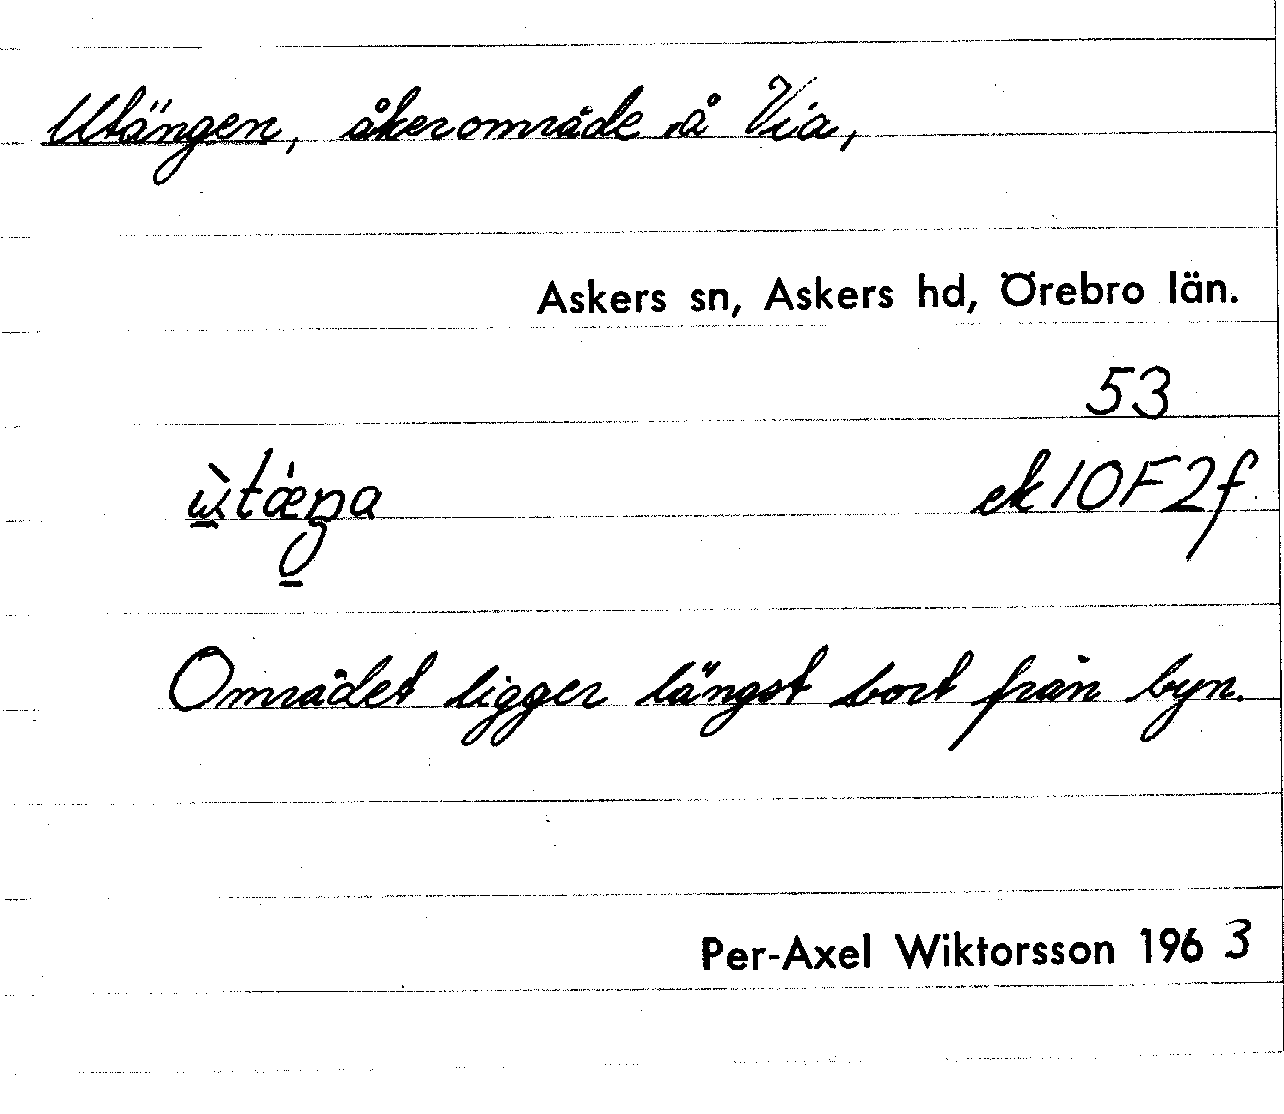 Utängen, åkerområde å Via,
Askers sn, Askers hd, Örebro län.
53
ẁtǽŋa ek10F2f
Området ligger längst bort från byn.
Per-Axel Wiktorsson 1963